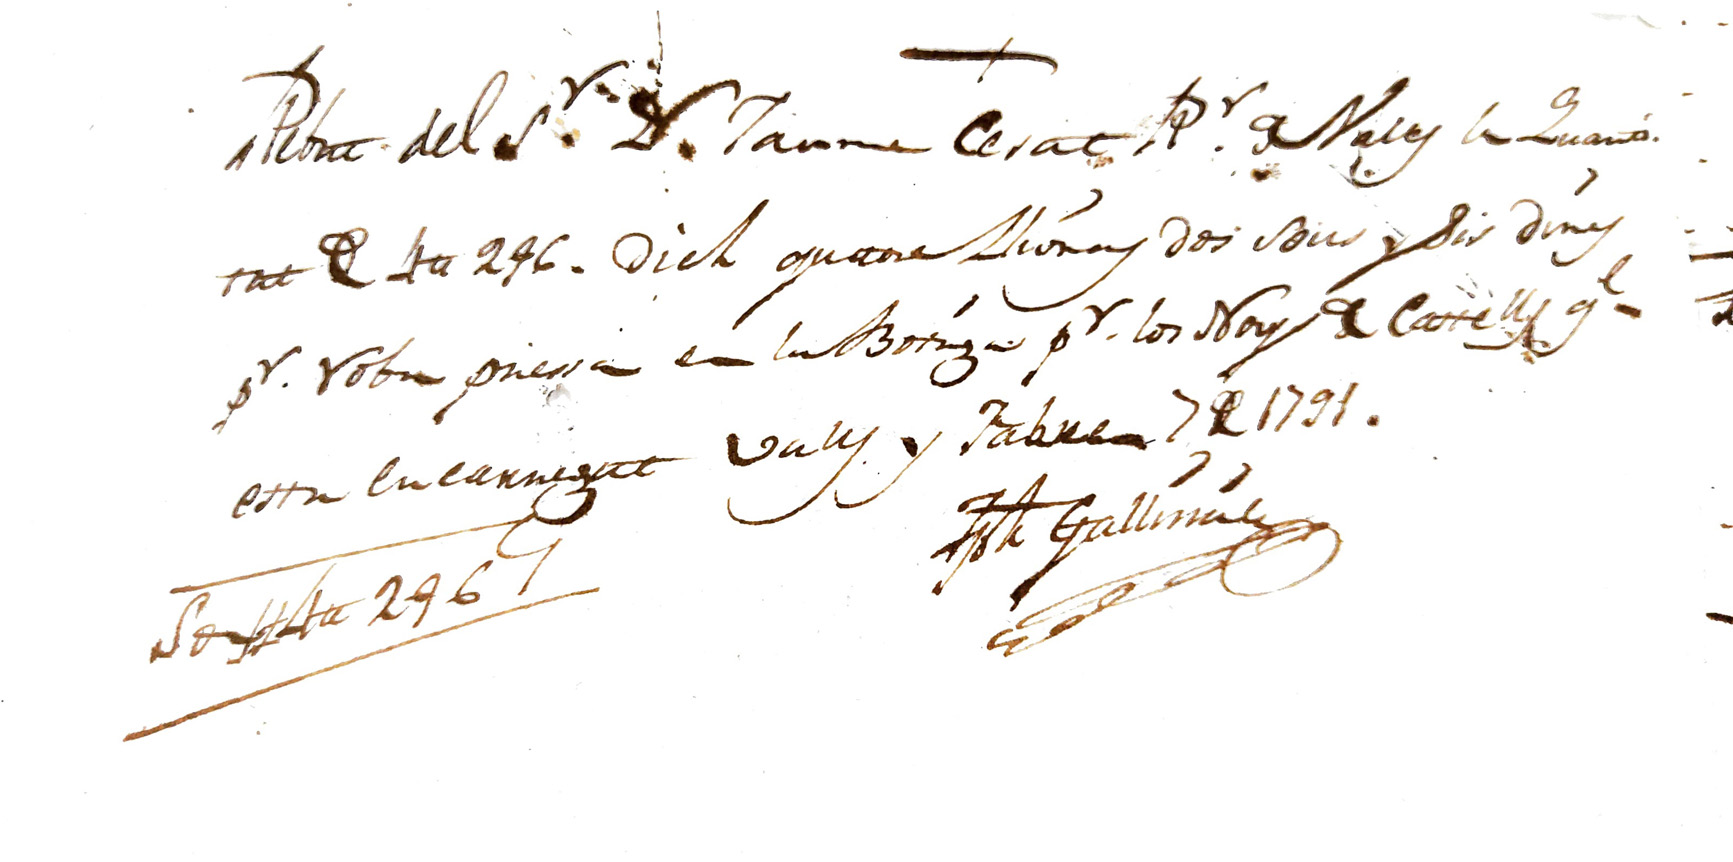 Rebut del Sr. Dr. Jaume Cesat Pr. de Valls la Quanti-
tat de 4ll 2s 6. Dich quatre Lliuras dos sous y sis diners
pr. roba presa en la Botiga pr. los Noys de Castells ql
esta encarregat Valls y Fabrer 7 de 1791.
Jph Galliner
Son 4ll 2s 6